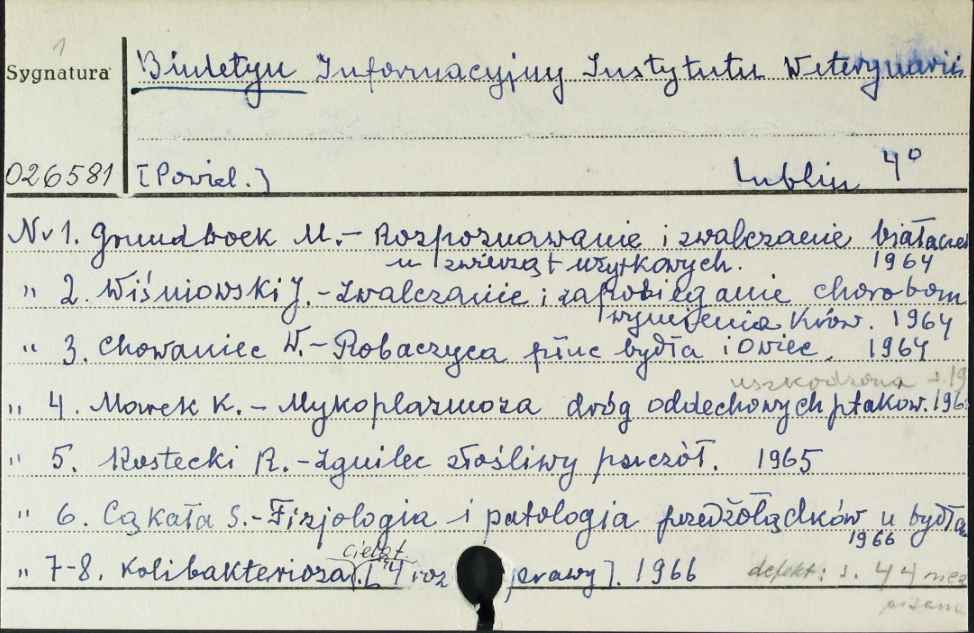 1
Sygnatura
Biuletyn Informacyjny Instytutu Weterynarii
026581 [Powiel.] Lublin 4°
Nr 1. Grundboek M.- Rozpoznawanie i zwalczanie białaczek
u zwierząt użytkowych. 1964
" 2. Wiśniowski J.- Zwalczanie i zapobieganie chorobom
wymienia krów. 1964
" 3. Chowaniec W.- Robaczyca płuc bydła i owiec. 1964
uszkodzona s. 19
" 4. Marek K.- Mykoplazmoza dróg oddechowych ptaków. 196
" 5. Kostecki R.- Zgnilec złośliwy pszczół. 1965
" 6. Cąkała S.- Fizjologia i patologia przedżołądków u bydła
1966
cieląt
" 7-8. Kolibakterioza. [4 roz prawy]. 1966 defekt: s. 44 niez
pisana